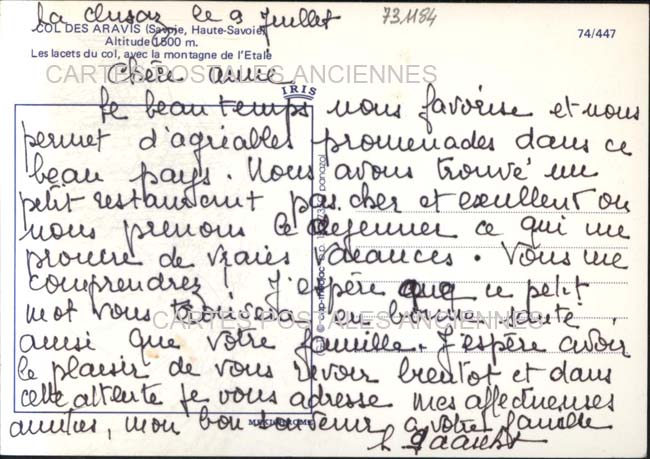 La Clusaz le 9 Juillet
731184
COL DES ARAVIS (Savoie, Haute-Savoie)
Altitude 1500 m.
Les lacets du col, avec la montagne de l'Etale
74/447
CARTES POSTALES ANCIENNES
Chère amie
IRIS
Le beau temps nous favorise et nous
permet d'agréables promenades dans ce
beau pays. Nous avons trouvé un
petit restaurant pas cher et exellent ou
nous prenons le dejeuner ce qui me
procure de vraies vacances. Vous me
comprendrez! J'espère que ce petit
mot vous trouvera en bonne santé
CARTES POSTALES ANCIENNES
ainsi que votre famille. J'espère avoir
le plaisir de vous revoir bientot et dans
cette attente je vous adresse mes affectueuses
amitiés, mon bon souvenir a votre famille
MEXICHROME